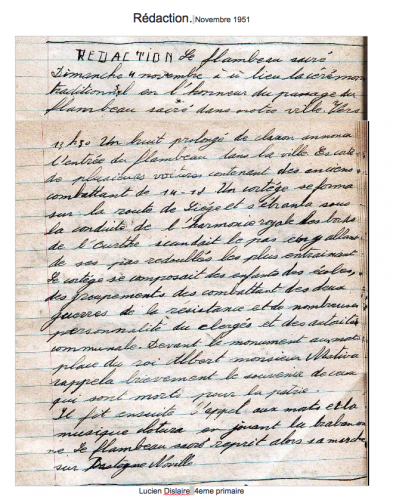 Rédaction. Novembre 1951
REDACTION Le flambeau sacré
Dimanche 4 novembre à ü lieu la cérémon
traditionnel en l'honneur du passage du
flambeau sacré dans notre ville. Vers
13 h30 Un bruit prolongé de claxon annonca
l'entrée du flambeau dans la ville. Escorté
de plusieurs voitures contenant des anciens
combattant de 14-18 Un cortège se forma
sur la route de Liège et s'ébranla sous
la conduite de l'harmonie royale des bords
de l'ourthe scandait le pas allan
de ses pas redoublés les plus entrainant
Le cortège se composait des enfants des écoles,
des groupement des combattant des deux
guerres de la resistance et de nombreuses
personnalité du clergés et des autorités
communale. Devant le monument aux morts
place du roi Albert monsieur
rappela brèvement le souvenir de ceux
qui sont morts pour la patrie.
Il fit ensuite l'appel aux morts et la
musique clotura en jouant la brabanon
ne Le flambeau sacré reprit alors sa marche
sur Bastogne Noville
Lucien Dislaire 4eme primaire